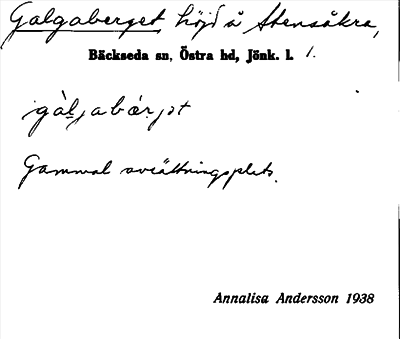 Galgaberget höjd å Stensåkra,
Bäckseda sn, Östra hd, Jönk. l. 1.
gàl̥jabær̥jət
Gammal avrättningsplats.
Annalisa Andersson 1938